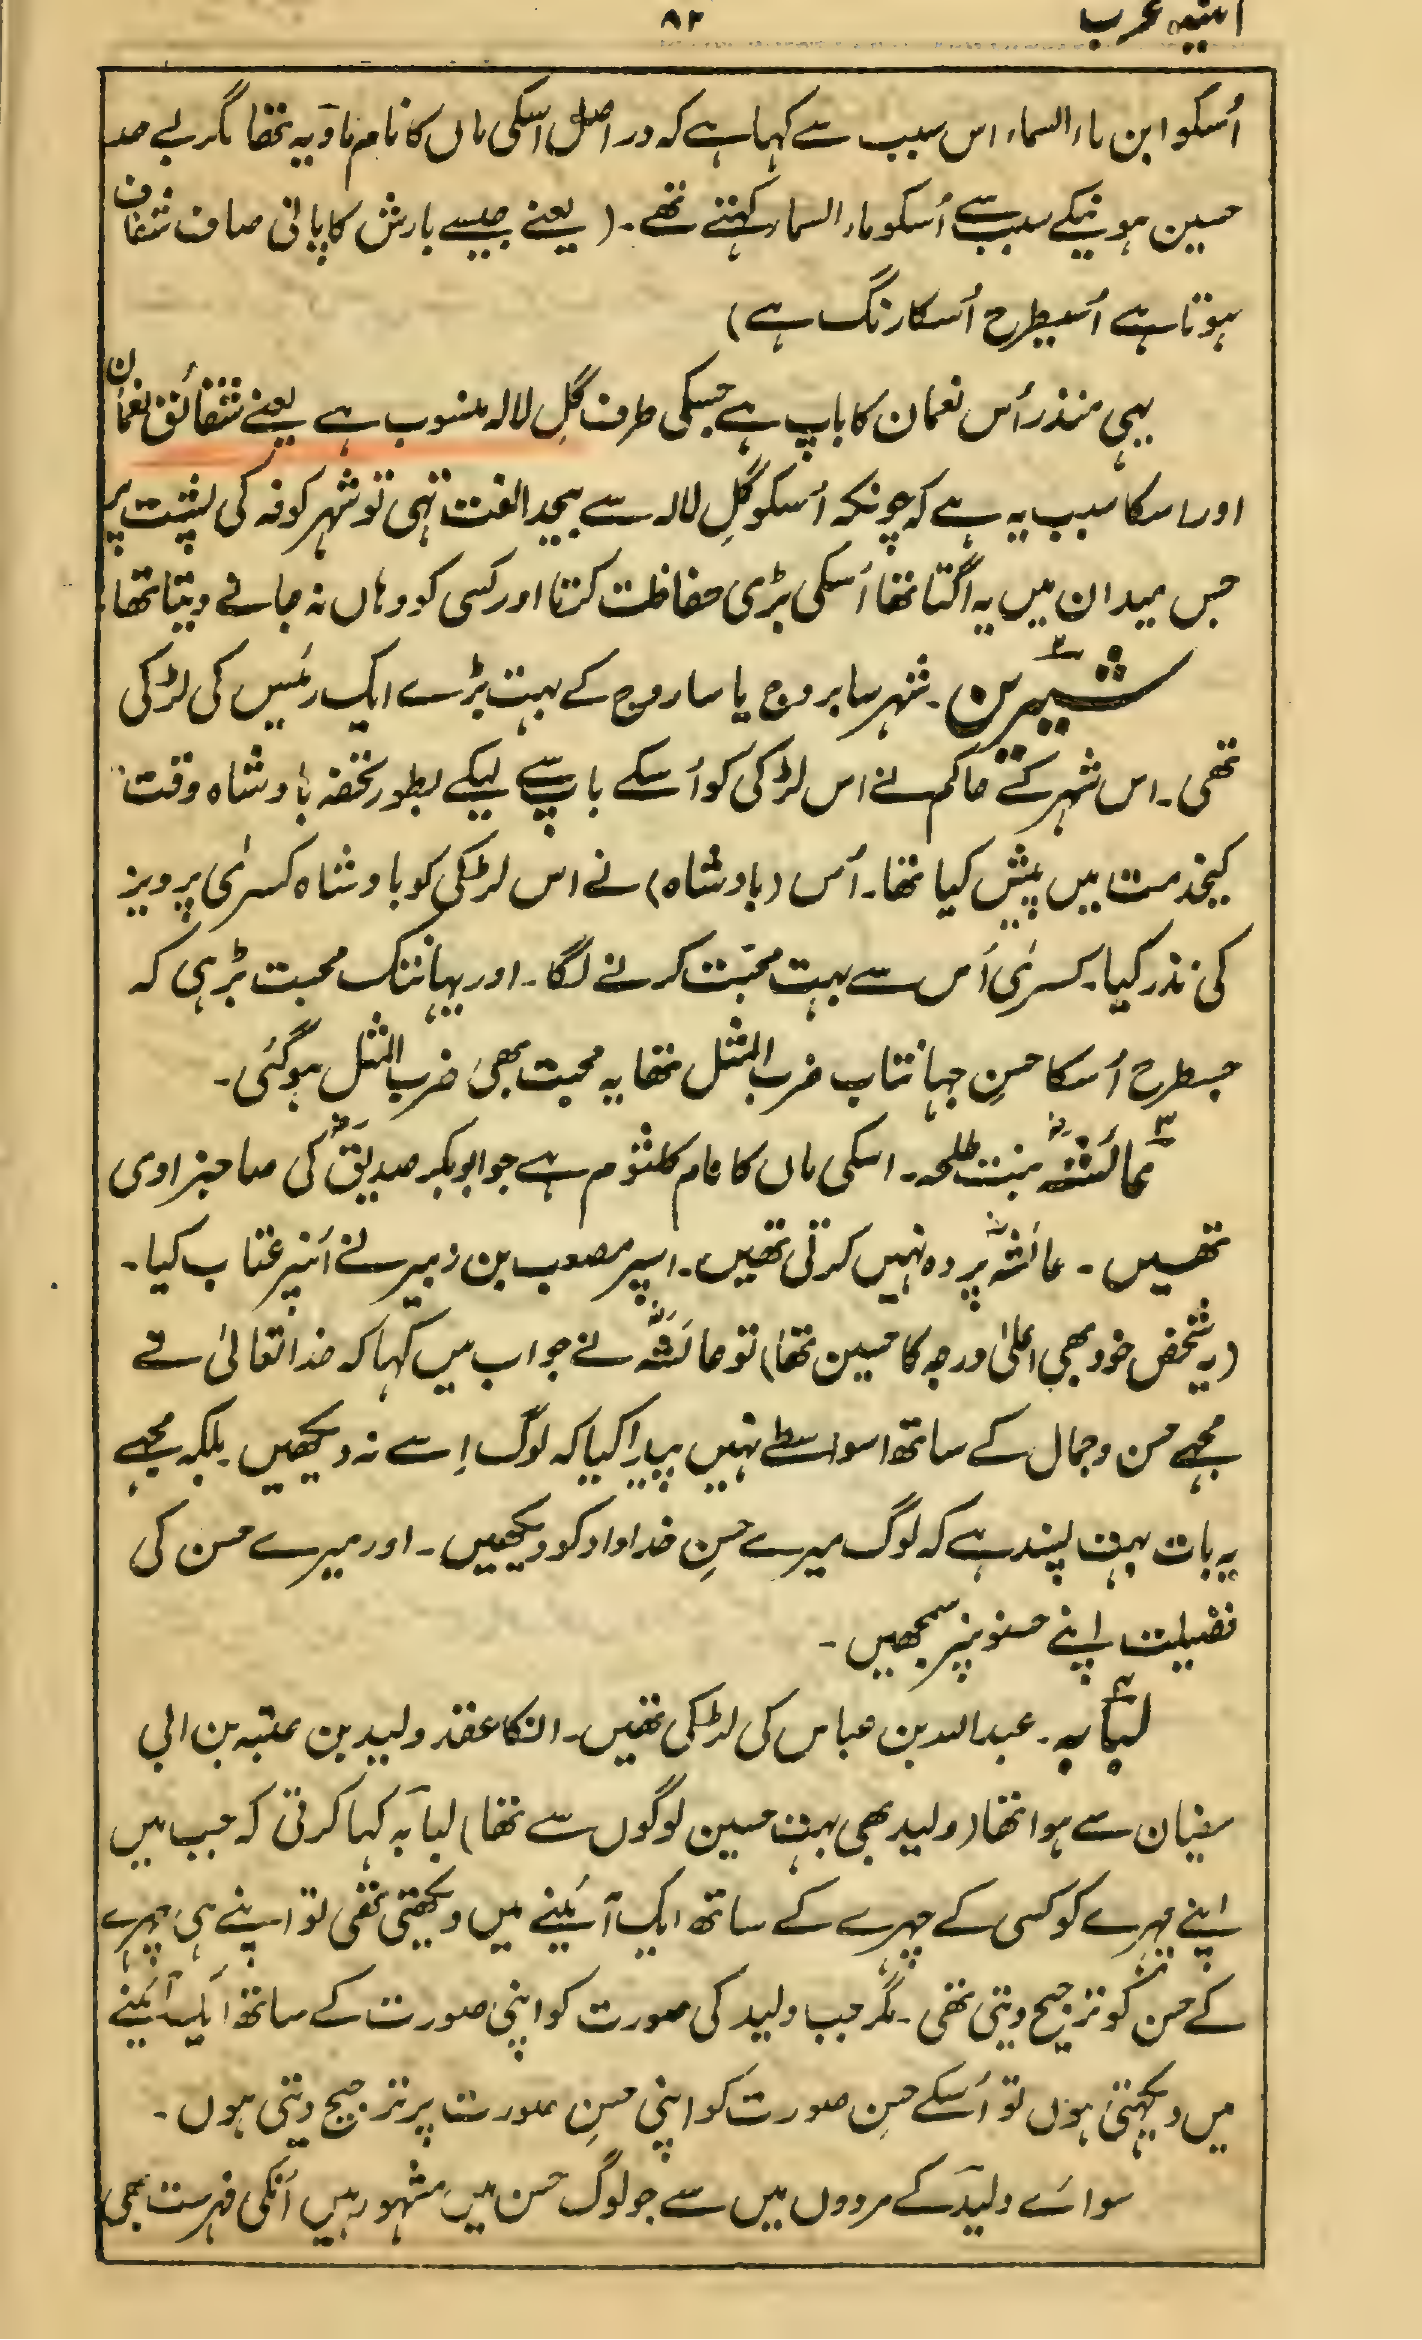 آئینہ عرب ۸۲
اُسکو ابن ماء السماء اس سبب سے کہا ہے کہ دراصل اسکی ماں کا نام ماویہ تھا مگر بے حد
حسین ہونیکے سبب سے اُسکو ماء السماء کہتے تھے۔ (یعنے جیسے بارش کا پانی صاف شفاف
ہوتا ہے اُسیطرح اُسکا رنگ ہے)
یہی منذر اُس نعمان کا باپ ہے جسکی طرف گلِ لالہ منسوب ہے یعنے شقائق نعمان
اور اسکا سبب یہ ہے کہ چونکہ اُسکو گلِ لالہ سے بیحد الفت تہی تو شہر کوفہ کی پشت پر
جس میدان میں یہ اگتا تھا اُسکی بڑی حفاظت کرتا اور کسی کو وہاں نہ جانے دیتا تھا
شیرین ۲۔ شہر سابروج یا ساروج کے بہت بڑے ایک رئیس کی لڑکی
تھی۔ اس شہر کے حاکم نے اس لڑکی کو اُسکے باپ سے لیکے بطور تحفہ بادشاہ وقت
کیخدمت میں پیش کیا تھا۔ اُس (بادشاہ) نے اس لڑکی کو بادشاہ کسریٰ پرویز
کی نذر کیا۔ کسریٰ اُس سے بہت محبّت کرنے لگا۔ اور یہانتک محبت بڑہی کہ
جسطرح اُسکا حسنِ جہانتاب ضرب المثل تھا یہ محبت بھی ضرب المثل ہوگئی۔
۳ عائشہؓ بنت طلحہ۔ اسکی ماں کا نام کلثوم ہے جو ابوبکر صدیقؓ کی صاحبزادی
تھیں۔ عائشہؓ پردہ نہیں کرتی تھیں۔ اسپر مصعب بن زبیر نے اُنپر عتاب کیا۔
(یہ شخص خود بھی اعلیٰ درجہ کا حسین تھا) تو عائشہؓ نے جواب میں کہا کہ خدا تعالیٰ نے
مجھے حسن و جمال کے ساتھ اسواسطے نہیں پیدا کیا کہ لوگ اِسے نہ دیکھیں۔ بلکہ مجھے
یہ بات بہت پسند ہے کہ لوگ میرے حسنِ خداداد کو دیکھیں۔ اور میرے حسن کی
فضیلت اپنے حسنونپر سمجھیں۔
لبابہ ۴۔ عبد اللہ بن عباس کی لڑکی تھیں۔ انکا عقد ولید بن عتبہ بن ابی
سفیان سے ہوا تھا (ولید بھی بہت حسین لوگوں سے تھا) لبابہ کہا کرتی کہ جب میں
اپنے چہرے کو کسی کے چہرے کے ساتھ ایک آئینے میں دیکھتی تھی تو اپنے ہی چہرے
کے حسن کو ترجیح دیتی تھی۔ مگر جب ولید کی صورت کو اپنی صورت کے ساتھ ایک آئینے
میں دیکہتی ہوں تو اُسکے حسنِ صورت کو اپنی حسنِ صورت پر ترجیح دیتی ہوں۔
سوائے ولید کے مردوں میں سے جو لوگ حسن میں مشہور ہیں اُنکی فہرست بھی